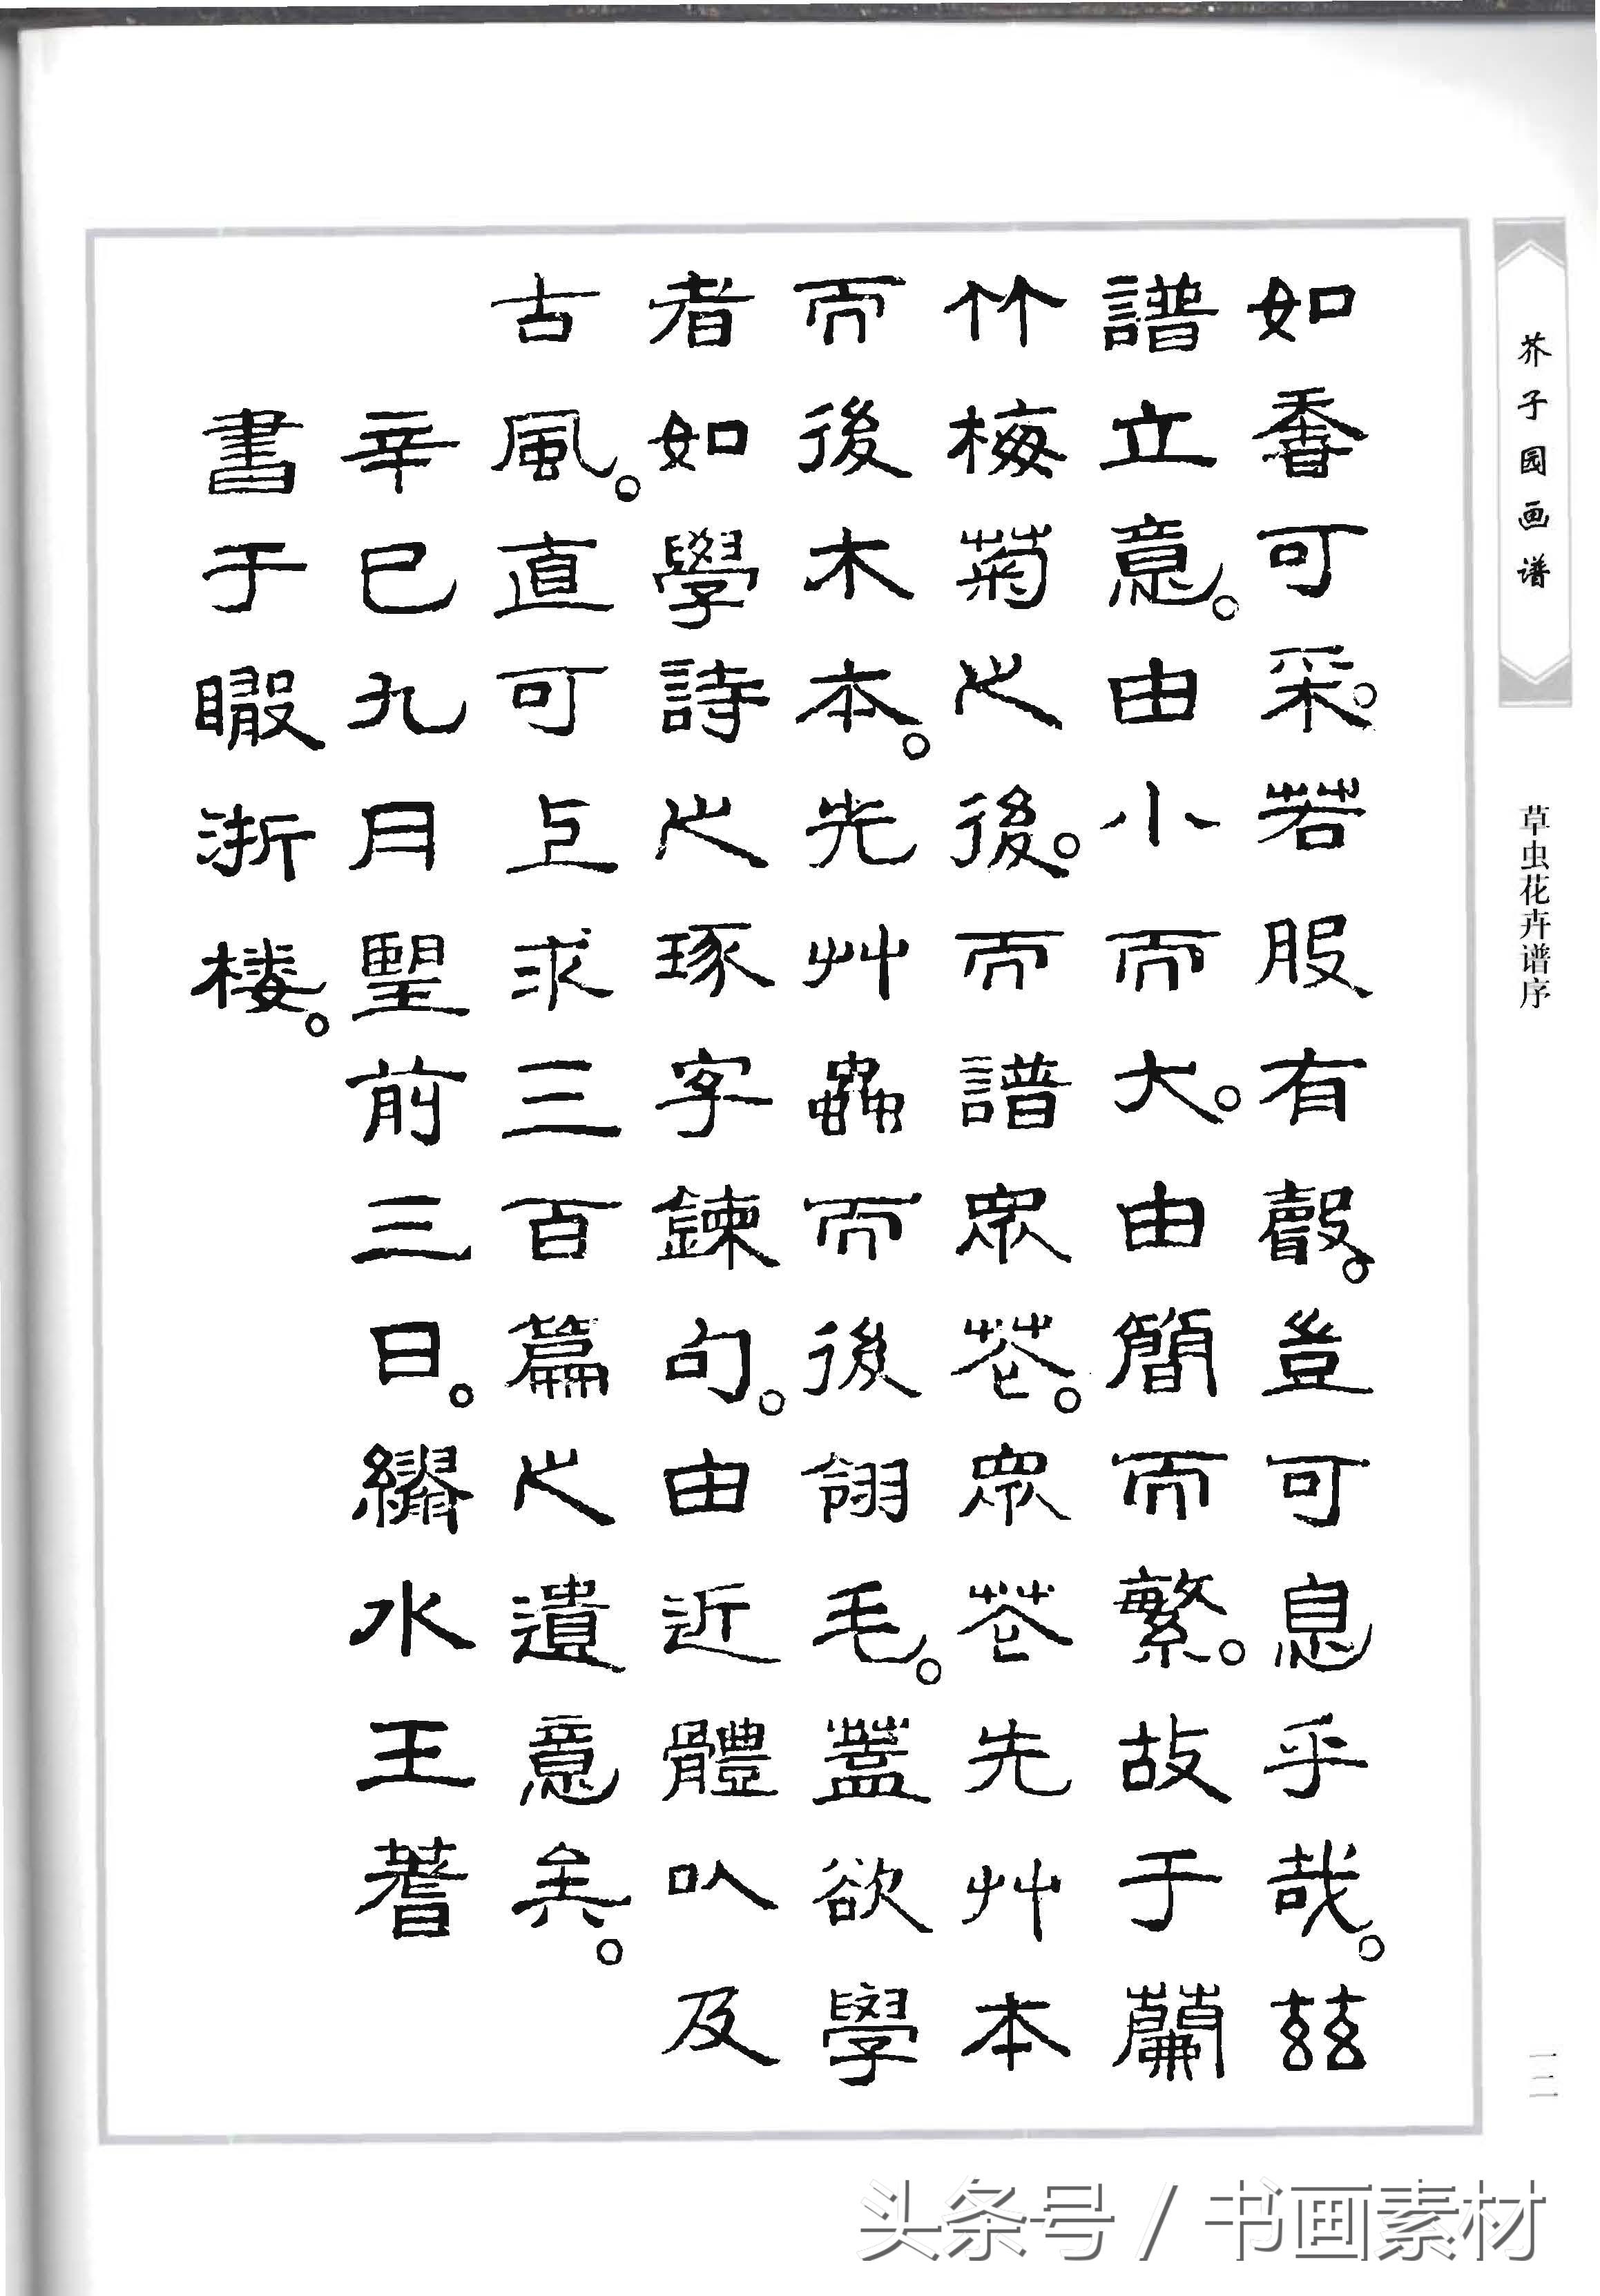 芥子园画谱
草虫花卉谱序
一二
如香可采若服有聲。豈可息乎哉。茲
譜立意。由小而大。由簡而繁。故于蘭
竹梅菊之後。而譜眾花。眾花先艸本
而後木本。先艸蟲而後翎毛。蓋欲學
者如學詩之琢字鍊句。由近體以及
古風。直可上求三百篇之遺意矣。
辛巳九月望前三日。繡水王蓍
書于暇浙樓。
头条号 / 书画素材